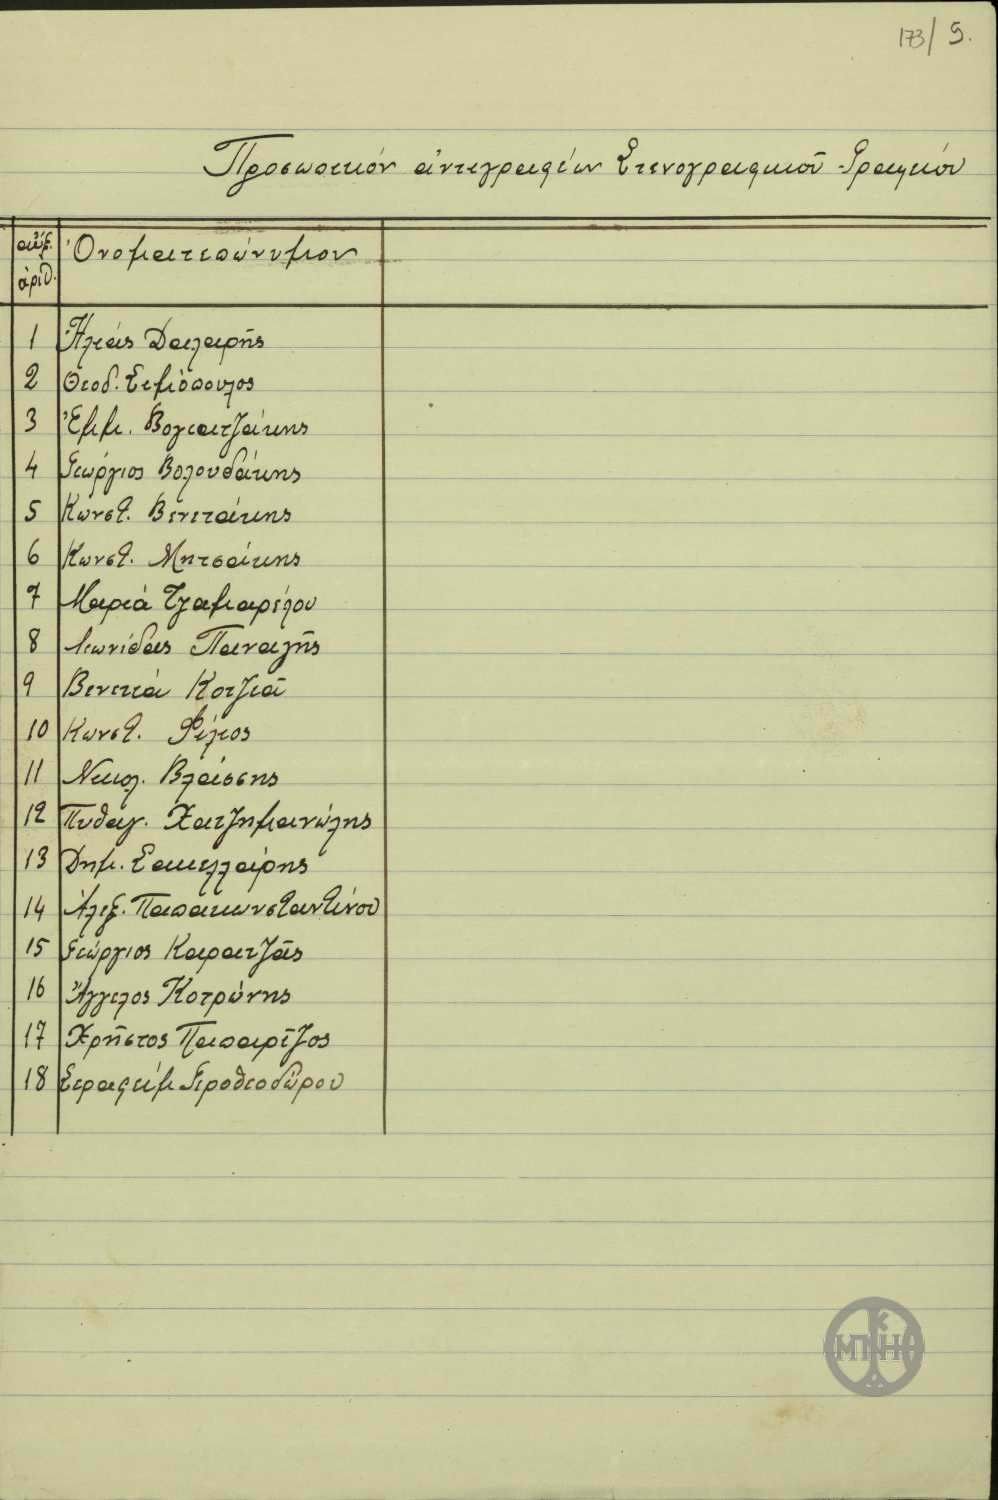 173/9.
Προσωπικόν ἀντιγραφέων Στενογραφικοῦ Γραφείου
αὔξ. ἀριθ. Ὀνοματεπώνυμον
1 Ἠλίας Δαλαρῆς
2 Θεοδ. Σιμόπουλος
3 Ἐμμ. Βογιατζάκης
4 Γεώργιος Βολουδάκης
5 Κωνστ. Βενετάκης
6 Κωνστ. Μητσάκης
7 Μαρία Τζαμαρέλου
8 Λεωνίδας Παναγῆς
9 Βενετία Κοτζιᾶ
10 Κωνστ. Φίλιος
11 Νικολ. Βλάσσης
12 Πυθαγ. Χατζημανώλης
13 Δημ. Σακελλάρης
14 Ἀλεξ. Παπακωνσταντίνου
15 Γεώργιος Καρατζᾶς
16 Ἄγγελος Κοτρώνης
17 Χρῆστος Παπαρίζος
18 Σεραφείμ Γεροθεοδώρου
ΜΝΗ